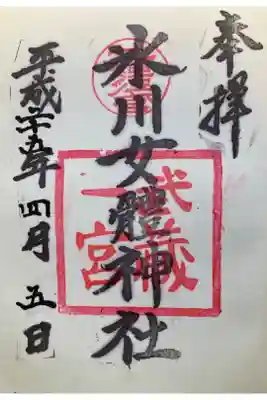 奉拝
氷川女體神社
武蔵
一宮
平成廿五年四月五日